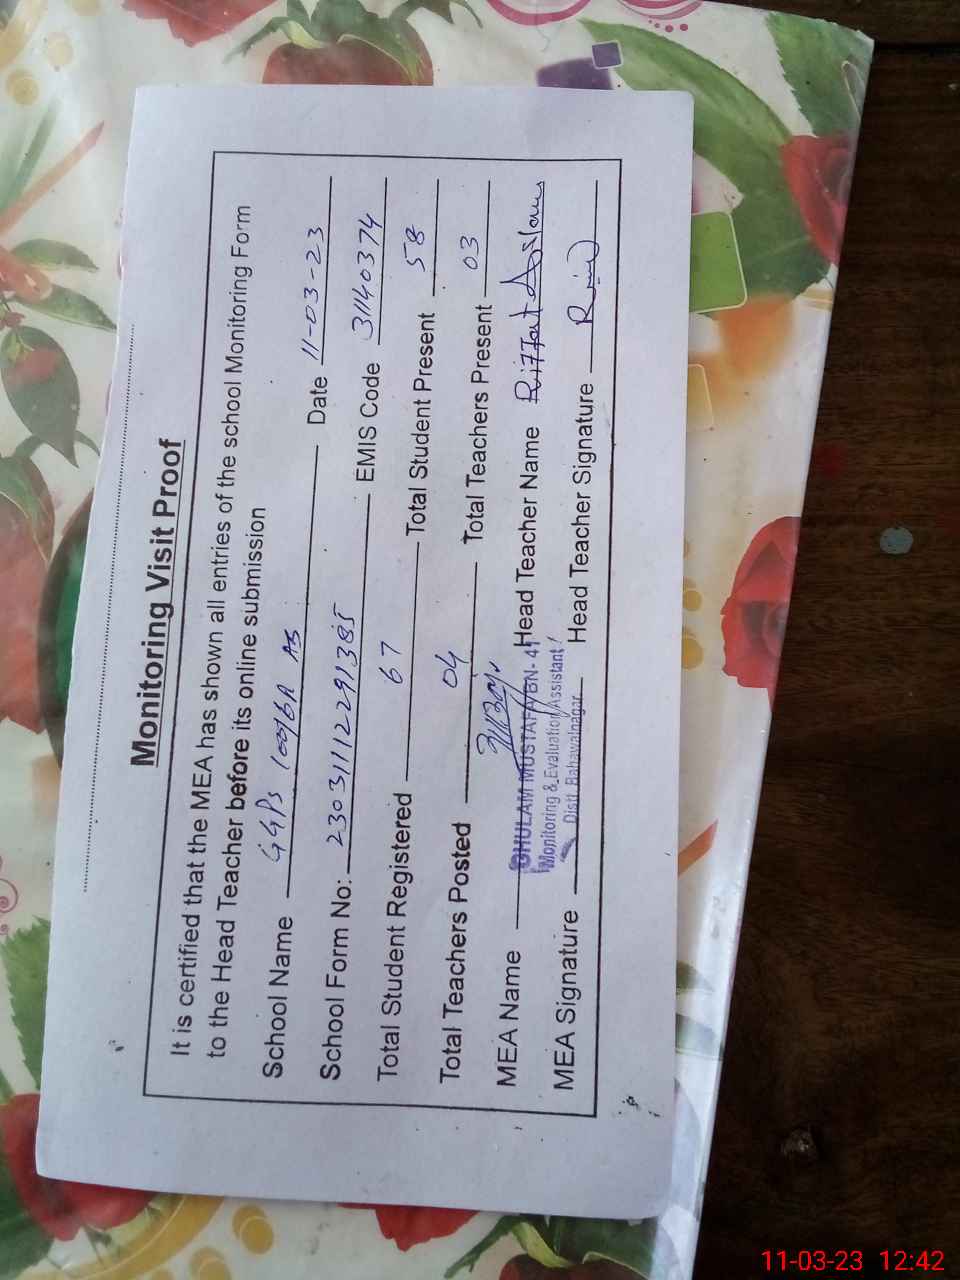 Monitoring Visit Proof
It is certified that the MEA has shown all entries of the school Monitoring Form
to the Head Teacher before its online submission
School Name GGPS 100/6R Date 11-03-23
School Form No: 23031112291385 EMIS Code 31140374
Total Student Registered 67 Total Student Present 58
Total Teachers Posted 04 Total Teachers Present 03
MEA Name GHULAM MUSTAFA BN-41 Head Teacher Name Riffat Aslam
Monitoring & Evaluation Assistant
Distt Bahawalnagar
MEA Signature Head Teacher Signature
11-03-23 12:42